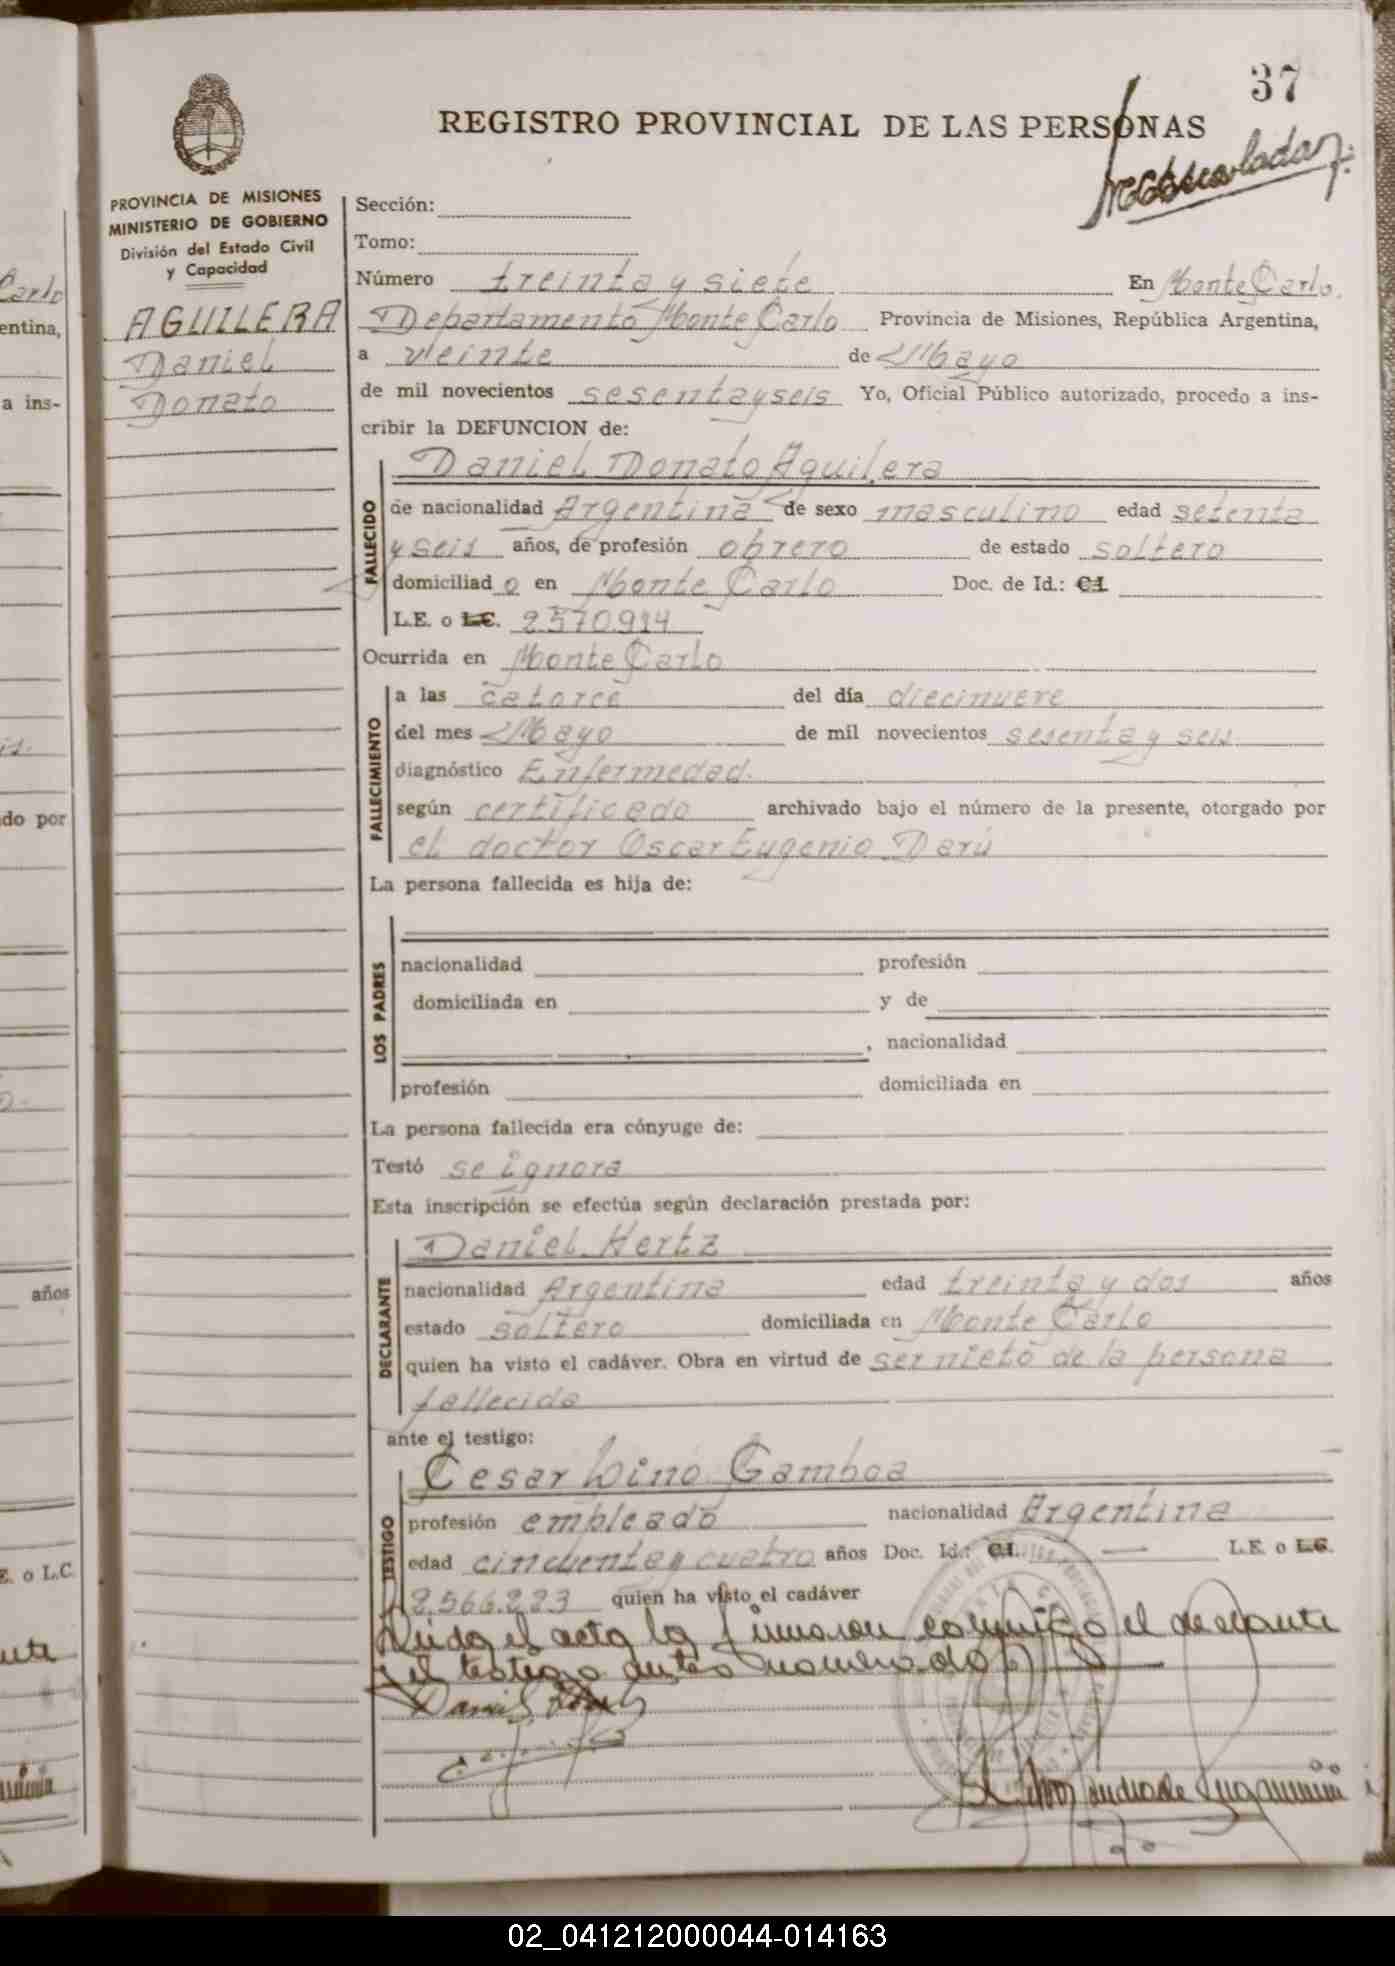 37
REGISTRO PROVINCIAL DE LAS PERSONAS
PROVINCIA DE MISIONES
MINISTERIO DE GOBIERNO
División del Estado Civil
y Capacidad
AGUILERA
Daniel
Donato
Sección:
Tomo:
Número treinta y siete En Monte Carlo.
Departamento Monte Carlo Provincia de Misiones, República Argentina,
a veinte de Mayo
de mil novecientos sesenta y seis Yo, Oficial Público autorizado, procedo a ins-
cribir la DEFUNCION de:
FALLECIDO
Daniel Donato Aguilera
de nacionalidad Argentina de sexo masculino edad setenta
y seis años, de profesión obrero de estado soltero
domiciliado en Monte Carlo Doc. de Id.: C.I.
L.E. o L.C. 2.570.914
Ocurrida en Monte Carlo
FALLECIMIENTO
a las catorce del día diecinueve
del mes Mayo de mil novecientos sesenta y seis
diagnóstico Enfermedad.
según certificado archivado bajo el número de la presente, otorgado por
el doctor Oscar Eugenio Darú
La persona fallecida es hija de:
LOS PADRES
nacionalidad profesión
domiciliada en y de
, nacionalidad
profesión domiciliada en
La persona fallecida era cónyuge de:
Testó se ignora
Esta inscripción se efectúa según declaración prestada por:
DECLARANTE
Daniel Hertz
nacionalidad Argentina edad treinta y dos años
estado soltero domiciliada en Monte Carlo
quien ha visto el cadáver. Obra en virtud de ser nieto de la persona
fallecida
ante el testigo:
TESTIGO
Cesar Lino Gamboa
profesión empleado nacionalidad Argentina
edad cincuenta y cuatro años Doc. Id.: C.I. — L.E. o L.C.
2.566.223 quien ha visto el cadáver
Leída el acta la firmaron conmigo el declarante
y el testigo antes nomenado
Daniel Hertz
Carlo
entina,
a ins-
do por
años
E. o L.C.
02_041212000044-014163